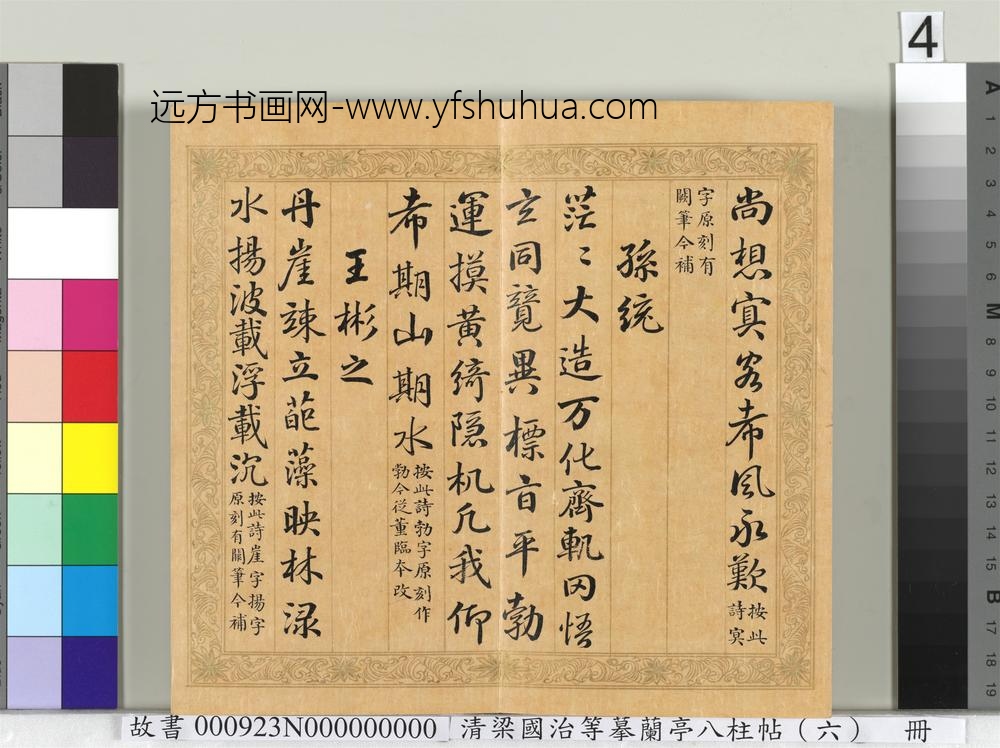 4
远方书画网-www.yfshuhua.com
尚想冥客希風永歎按此詩冥
字原刻有闕筆今補
孫統
茫〻大造万化齊軌因悟
玄同競異標旨平勃
運摸黄綺隐机凢我仰
希期山期水按此詩勃字原刻作勃今從董臨本改
王彬之
丹崖竦立葩藻映林渌
水揚波載浮載沉按此詩崖字揚字原刻有闕筆今補
故書 000923N000000000 清梁國治等摹蘭亭八柱帖（六） 冊
A 1 2 3 4 5 6 M 8 9 10 11 12 13 14 15 B 17 18 19